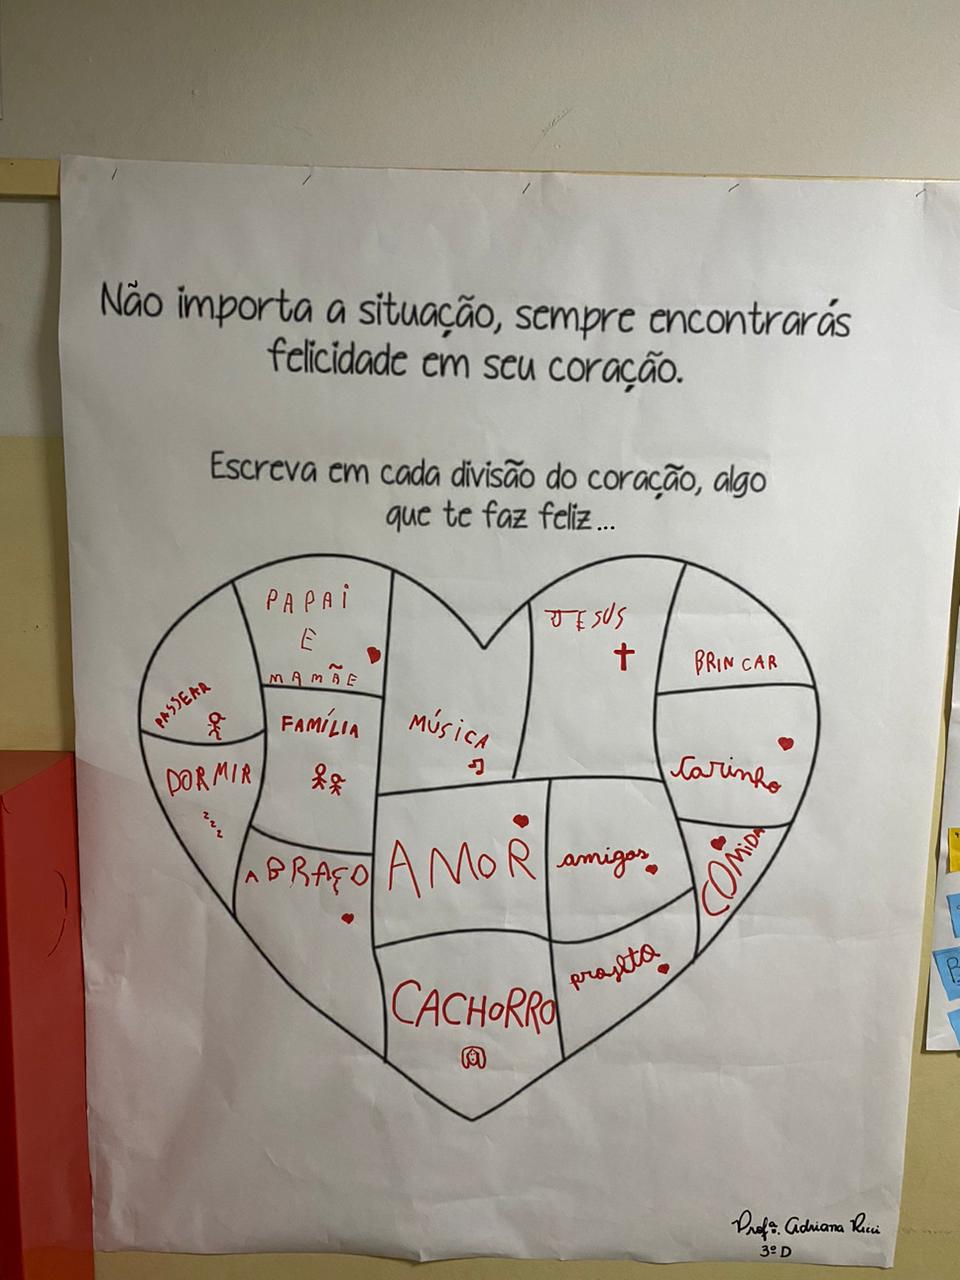 Não importa a situação, sempre encontrarás
felicidade em seu coração.
Escreva em cada divisão do coração, algo
que te faz feliz...
PAPAI
E
MAMÃE
JESUS
BRINCAR
PASSEAR
FAMÍLIA
MÚSICA
DORMIR
zzz
Carinho
ABRAÇO
AMOR
amigos
COMIDA
CACHORRO
Profª. Adriana Ricci
3º D